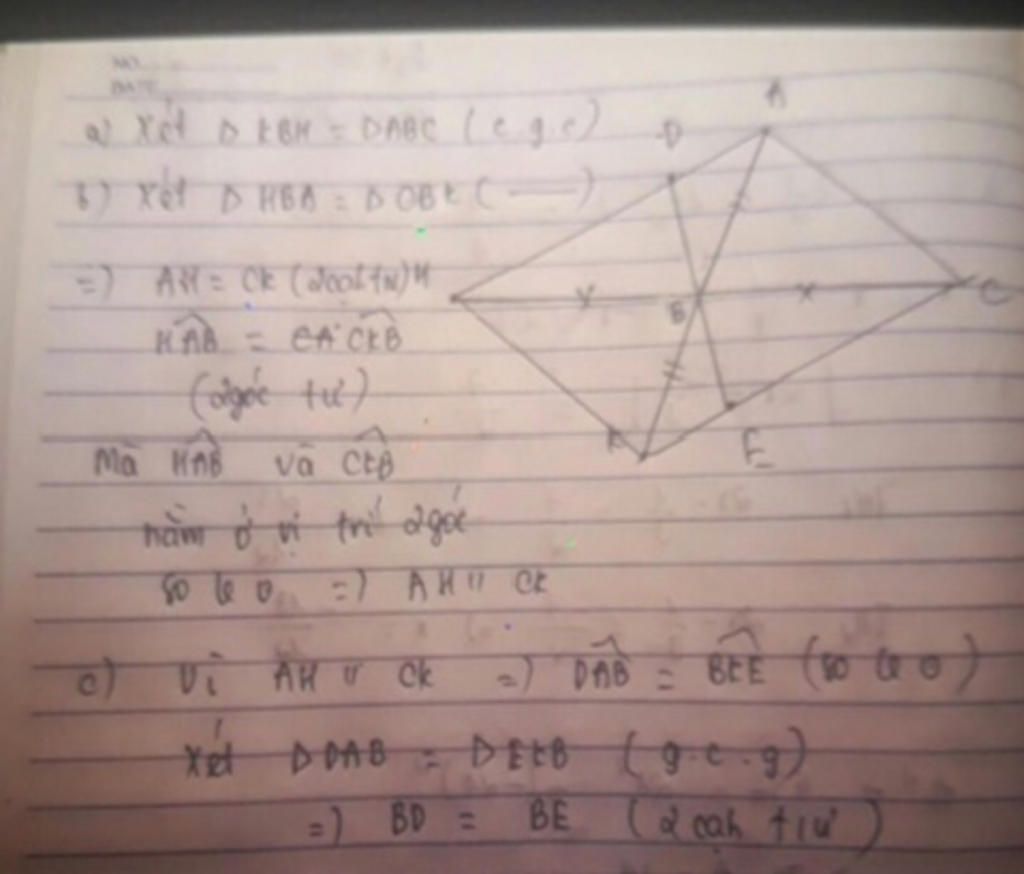 NO
DATE
a) Xét Δ KBH = ΔABC (c.g.c)
b) Xét Δ HBA = Δ CBK ( —— )
=) AH = CK (2cah tư) H
HAB = CKB
(2góc tư)
Mà HAB và CKB
nằm ở vị trí 2góc
so le o =) AH // CK
c) Vì AH // CK =) DAB = BKE (so le o)
Xét Δ DAB = Δ EKB (g.c.g)
=) BD = BE (2 cah tiư)
A
D
B
C
K
E